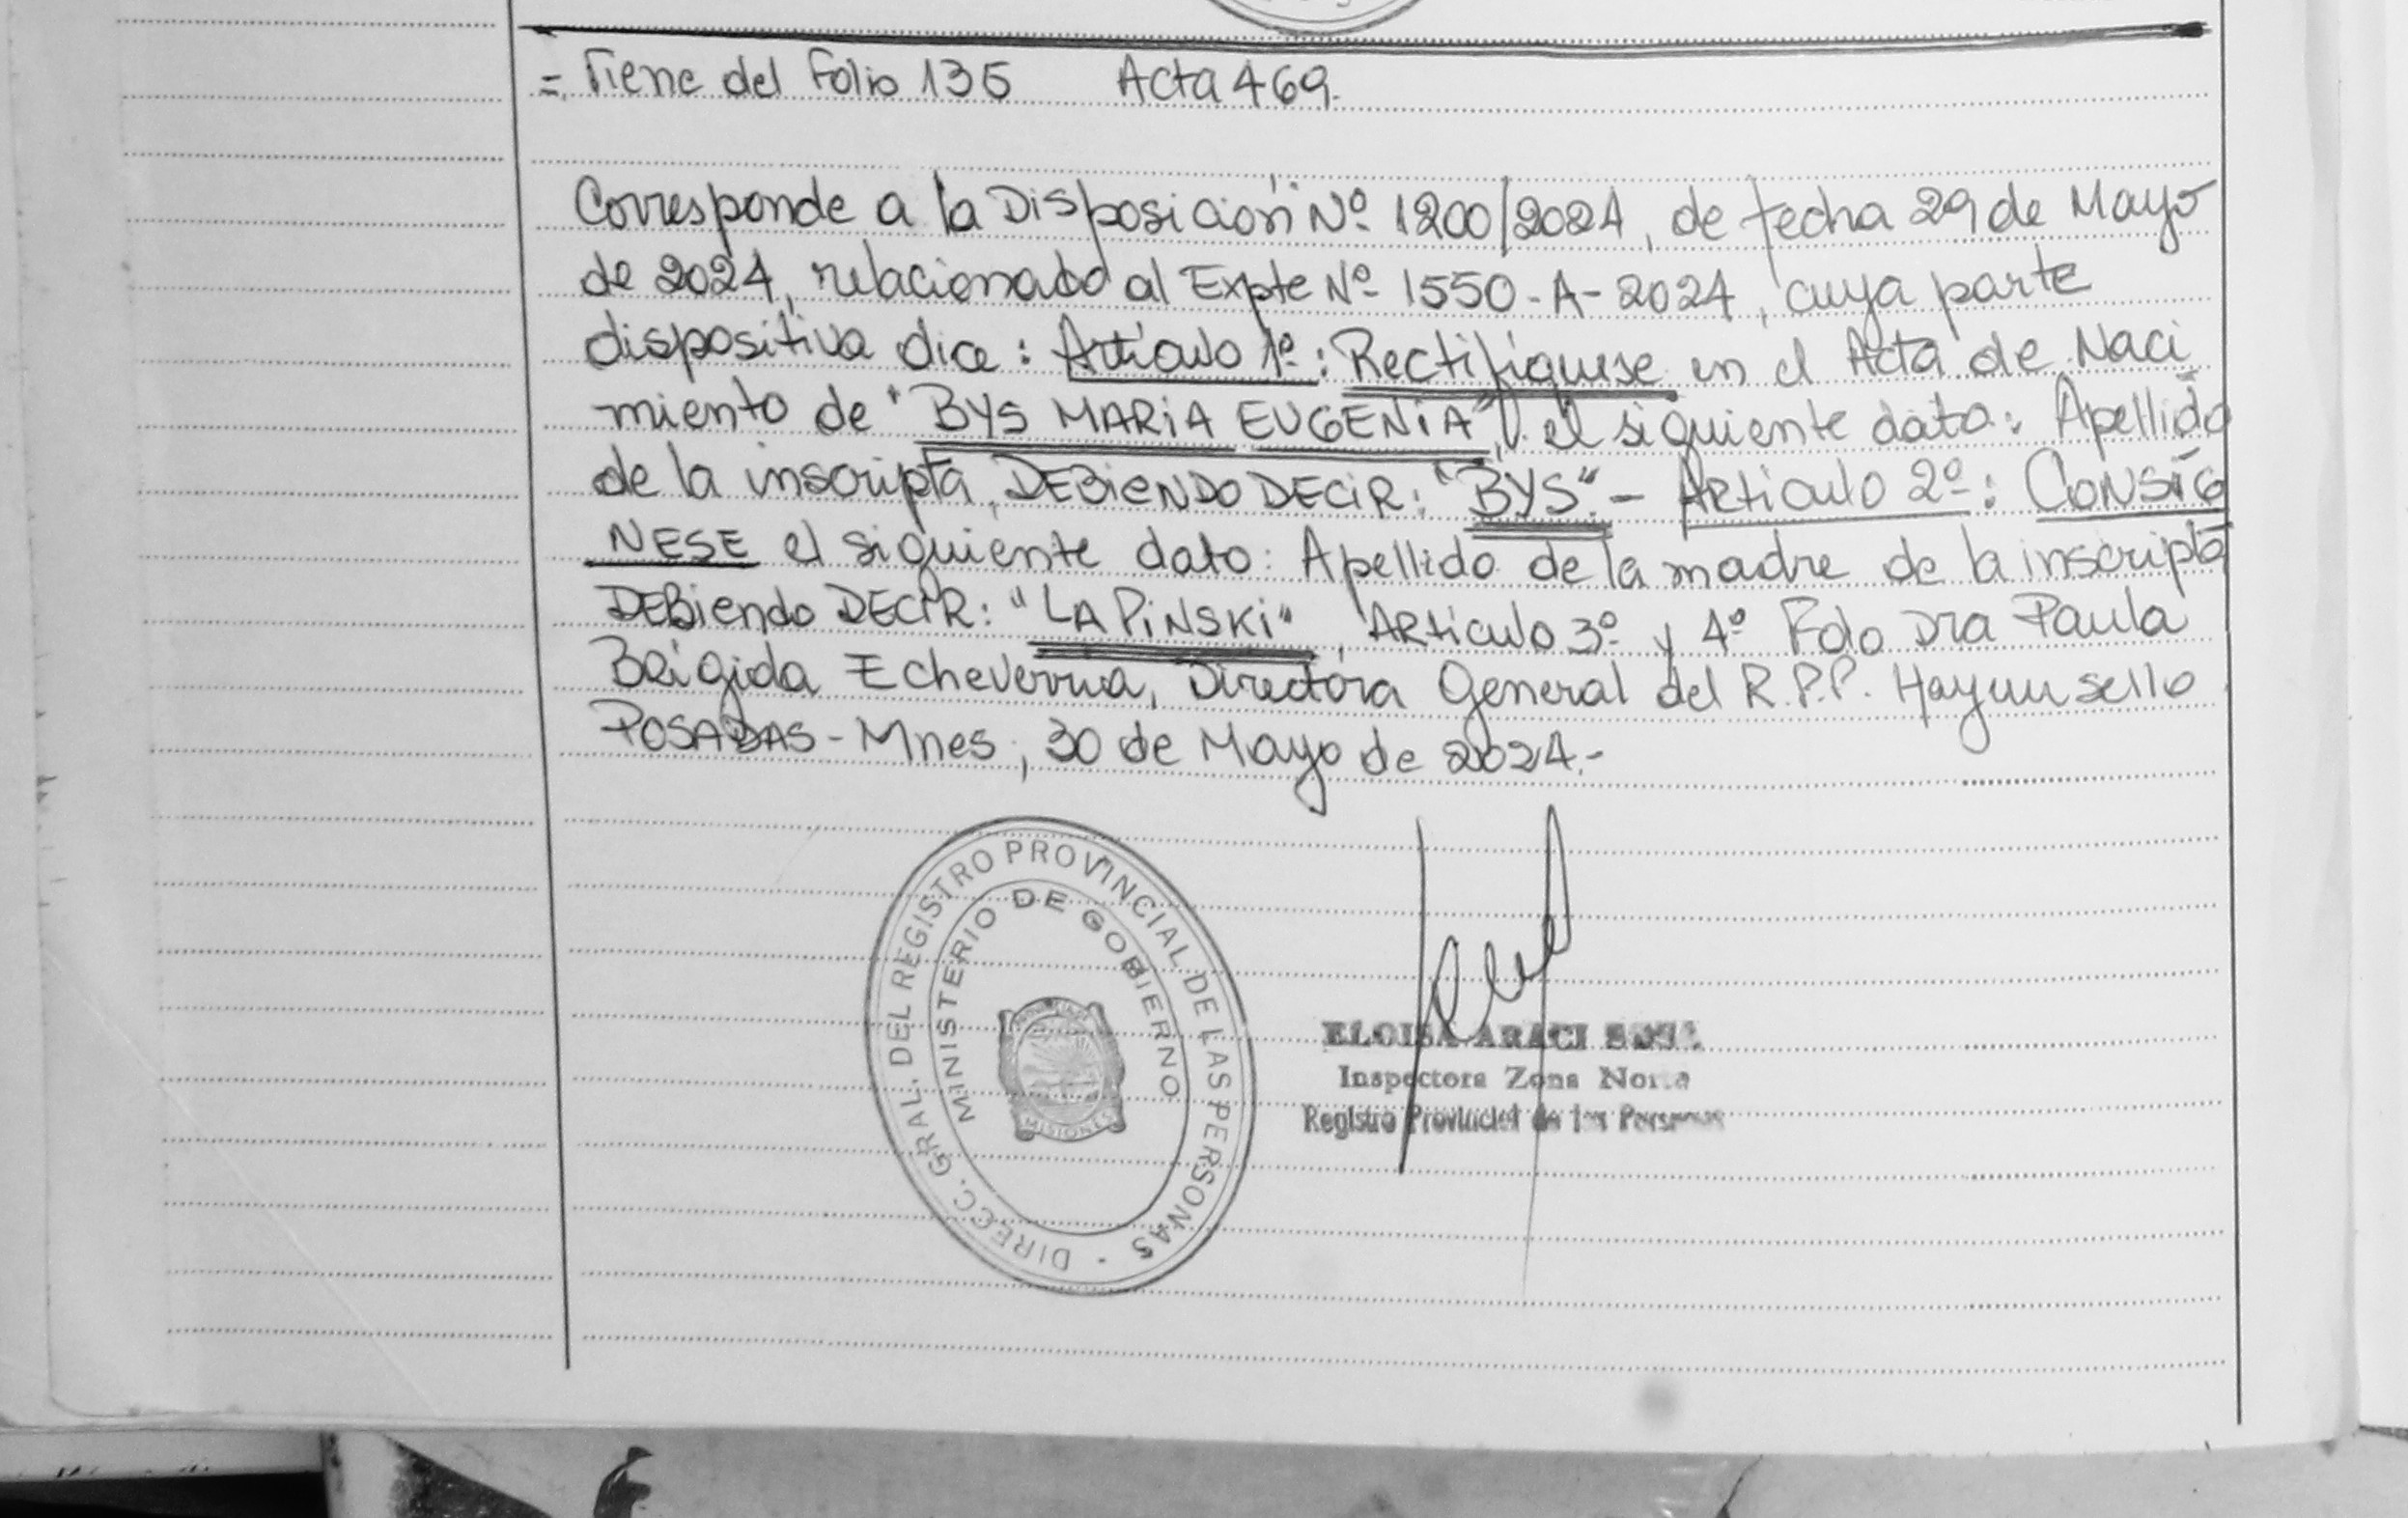 =. Viene del Folio 135 Acta 469.
Corresponde a la Disposición Nº 1200/2024, de fecha 29 de Mayo
de 2024, relacionado al Expte Nº 1550-A-2024, cuya parte
dispositiva dice: Artículo 1º: Rectifíquese en el Acta de Naci
miento de "BYS MARIA EUGENIA", el siguiente dato: Apellido
de la inscripta, DEBIENDO DECIR: "BYS".- Articulo 2º: CONSIG
NESE el siguiente dato: Apellido de la madre de la inscripta
DEBiendo DECIR: "LAPINSKI", Articulo 3º y 4º Fdo Dra Paula
Brigida Echeverria, Directora General del R.P.P. Hay un sello
POSADAS-Mnes, 30 de Mayo de 2024.-
DIRECC. GRAL. DEL REGISTRO PROVINCIAL DE LAS PERSONAS -
MINISTERIO DE GOBIERNO
MISIONES
ELOISA ARACI
Inspectora Zona Norte
Registro Provincial de las Personas